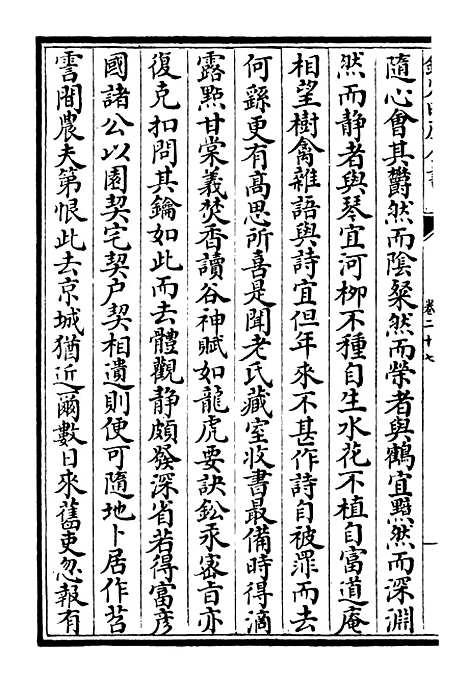 隨心會其欝然而陰粲然而榮者與鶴宜黯然而深淵
然而静者與琴宜河栁不種自生水花不植自富道庵
相望樹禽雜語與詩宜但年來不甚作詩自被罪而去
何繇更有髙思所喜是聞老氏藏室收書最備時得滴
露㸃甘棠義焚香讀谷神賦如龍虎要訣鈆汞宻旨亦
復克扣問其鑰如此而去體觀静頗發深省若得富彦
國諸公以園契宅契户契相遺則便可隨地卜居作苕
霅間農夫第恨此去京城猶近爾數日來舊吏忽報有
卷二十七